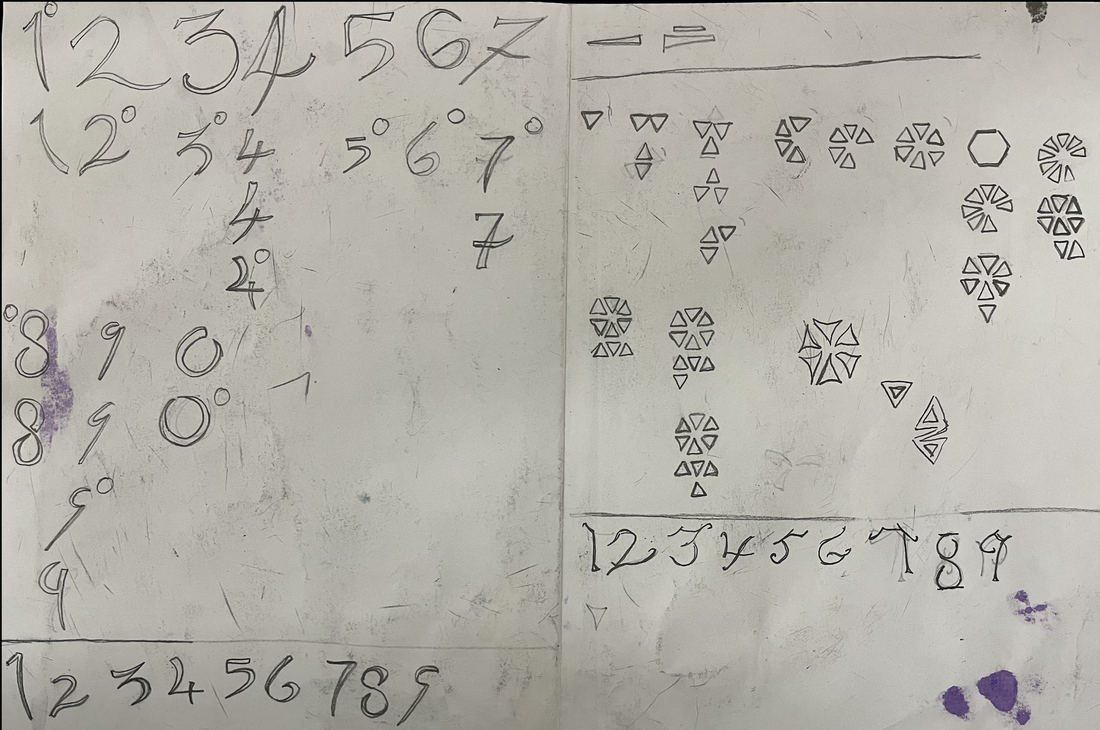 1 2 3 4 5 6 7
1 2 3 4 5 6 7
4 7
2
8 9 0
8 9 0
9
9
1 2 3 4 5 6 7 8 9
1 2 3 4 5 6 7 8 9